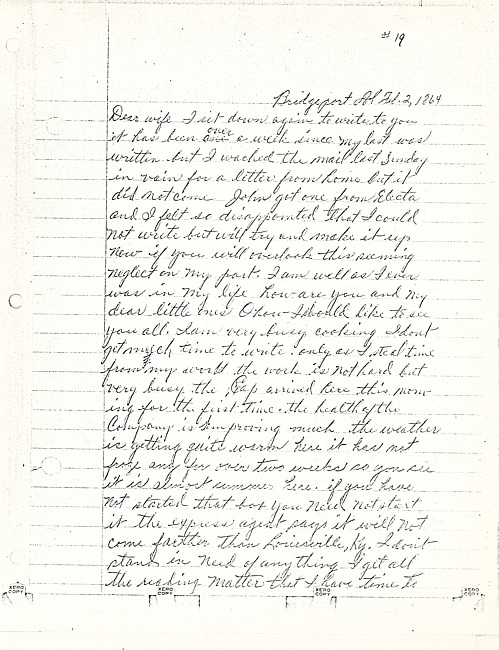 # 19
Bridgeport Al Feb. 2, 1864
Dear wife I sit down again to write to you
it has been over a week since my last was
written but I wached the mail last Sunday
in vain for a letter from home but it
did not come John got one from Electa
and I felt so disappointed that I could
not write but will try and make it up
now if you will overlook this seeming
neglect on my part. I am well as I ever
was in my life how are you and my
dear little ones O how I would like to see
you all. I am very busy cooking I dont
get much time to write: only as I steal time
from my work the work is not hard but
very busy the Cap arrived here this morn-
ing for the first time. the health of the
Company is improving much the weather
is getting quite warm here it has not
froze any for over two weeks so you see
it is almost summer here. if you have
not started that box you need not start
it the express agent says it will not
come farther than Louisville, Ky. I don't
stand in need of anything I get all
the reading matter that I have time to
XERO COPY
XERO COPY
XERO COPY
XERO COPY